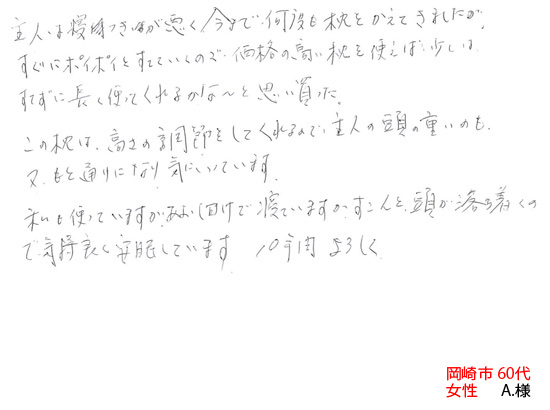 主人は寝つきが悪く今まで何度も枕をかえてきましたが、
すぐにポイポイとすてていくので価格の高い枕を使えば少しは
すてずに長く使ってくれるかな〜と思い買った。
この枕は、高さの調節をしてくれるので主人の頭の重いのも、
又、もと通りになり気にいっています。
私も使っていますが、あお向けで寝ていますが、すこんと、頭が落ち着くの
で気持良く安眠しています 10年間 よろしく
岡崎市 60代
女性 A.様